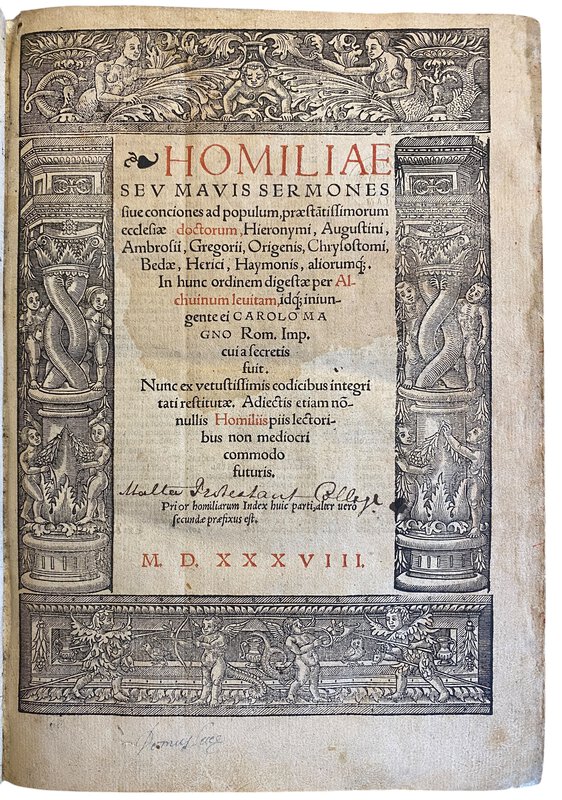 HOMILIAE
SEV MAVIS SERMONES
siue conciones ad populum, præstātissimorum
ecclesiæ doctorum, Hieronymi, Augustini,
Ambrosii, Gregorii, Origenis, Chrysostomi,
Bedæ, Herici, Haymonis, aliorumq́;.
In hunc ordinem digestæ per Al-
chuinum leuitam, idq́; iniun-
gente ei CAROLO MA
GNO Rom. Imp.
cui a secretis
fuit.
Nunc ex vetustissimis codicibus integri
tati restitutæ. Adiectis etiam nō-
nullis Homiliis piis lectori-
bus non mediocri
commodo
futuris.
Malta Protestant College
Prior homiliarum Index huic parti, alter uero
secundæ præfixus est.
M. D. XXXVIII.